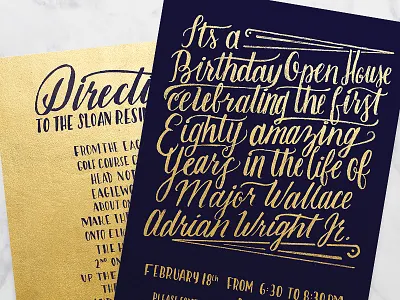 Directo
TO THE SLOAN RESI
FROM THE EAG
GOLF COURSE C
HEAD NOT
EAGLEWO
ABOUT ON
MAKE TH
ONTO ELLI
THE H
2ND ON
UP THE
THE
Its a
Birthday Open House
celebrating the first
Eighty amazing
Years in the life of
Major Wallace
Adrian Wright Jr.
FEBRUARY 18th FROM 6:30 TO 8:30 P